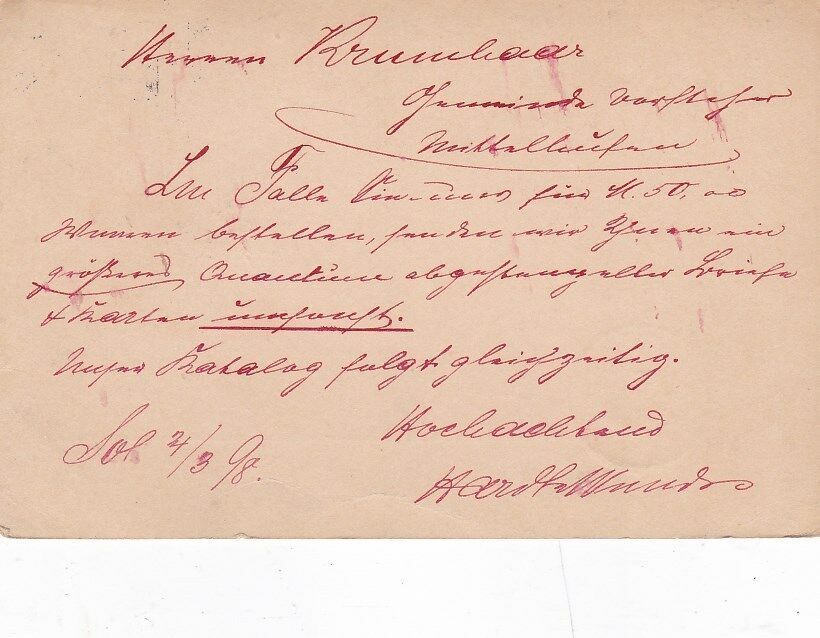 Herren Krumhaar
Gemeinde Vorsteher
Mittelhufen
Im Falle Sie uns für M. 50,00
Waaren bestellen, senden wir Ihnen ein
größeres Quantum abgestempelter Briefe
& Karten umsonst.
Unser Katalog folgt gleichzeitig.
Hochachtend
Sol 2/3 98.